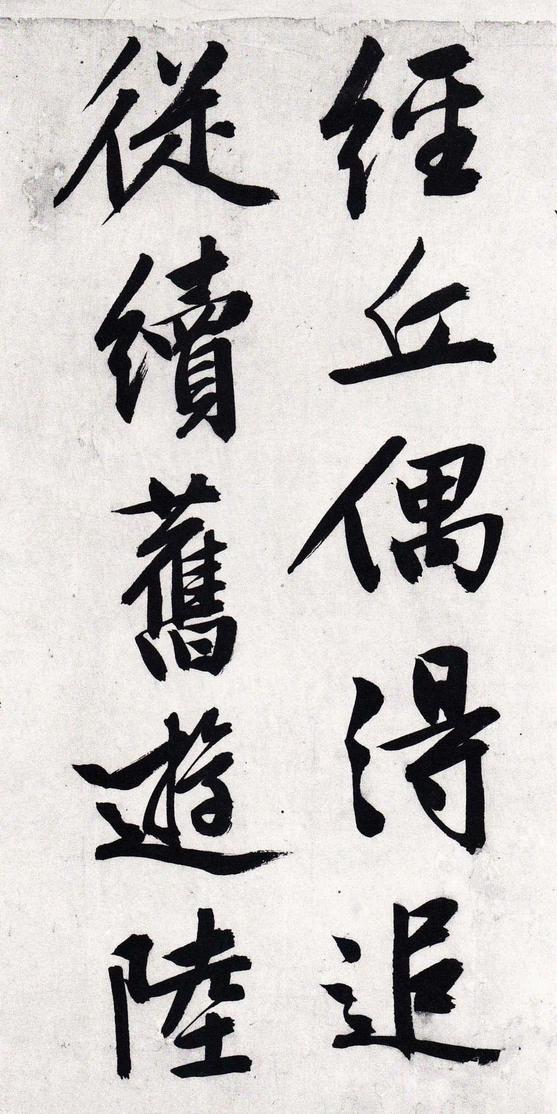 經丘偶得追
從續舊遊陸